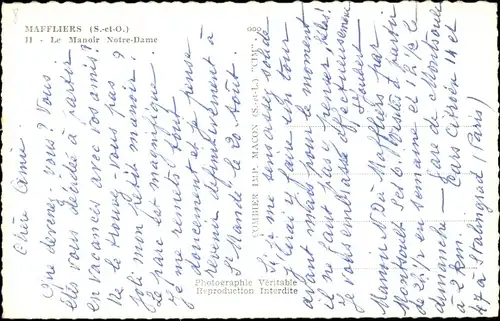 MAFFLIERS (S.-et-O.)
11 - Le Manoir Notre-Dame
Chère Amie.
Que devenez-vous ? Vous
êtes vous décidée à partir
en vacances avec vos amis ?
Ne le trouvez-vous pas ?
joli mon petit manoir ?
Le parc est magnifique
je me remets tout
doucement et je pense
revenir définitivement à
St Mandé le 20 août.
COMBIER IMP. MACON (S.-et-L.) "CIM"
Si je me sens assez solide
j'irai y faire un tour
avant mais pour le moment
il ne faut pas y penser, hélas!
je vous embrasse affectueusement
Manoir N. D. à Maffliers par
Montsoult S et O
de 2 h 1/2 en semaine et 12 h le
dimanche - Gare de Montsoult
à 2 km.
Cars Citroën 14 et
17 à Stalingrad (Paris)
Photographie Véritable
Reproduction Interdite